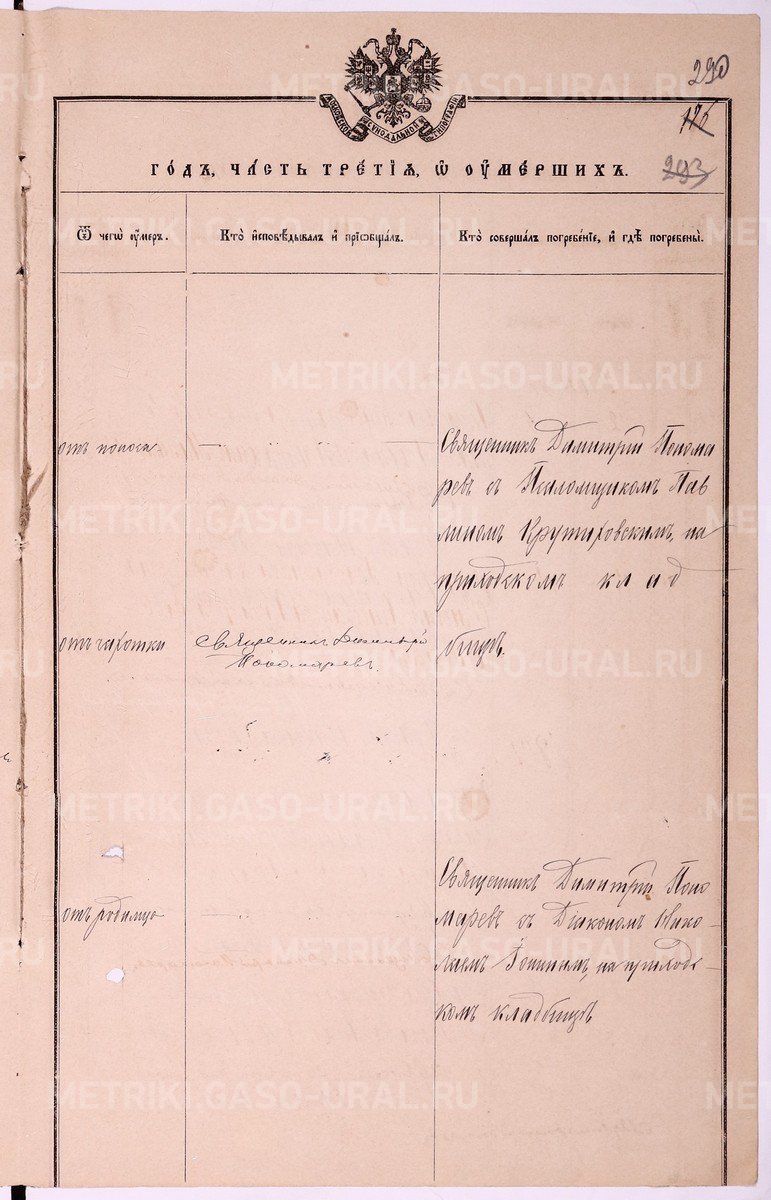 290
МОСКОВСКОЙ СѴНОДАЛЬНОЙ ТИПОГРАФІИ
186
293
ГО́ДЪ, ЧА́СТЬ ТРЕ́ТІѦ, Ѡ҆ ОУ҆МЕ́РШИХЪ.
Ѿ чегѡ̀ ᲂу҆́меръ.
Кто̀ и҆сповѣ́дывалъ и҆ прїѡбща́лъ.
Кто̀ соверша́лъ погребе́нїе, и҆ гдѣ̀ погребены̀.
отъ поноса
Священникъ Димитрій Понома
ревъ съ Псаломщикомъ Пав
линомъ Крутиховскимъ, на
приходскомъ клад
бищѣ.
отъ чахотки
Священникъ Димитрій
Пономаревъ.
отъ родимца
Священникъ Димитрій Поно
маревъ съ Діакономъ Нико-
лаемъ на приходс-
комъ кладбищѣ
METRIKI.GASO-URAL.RU